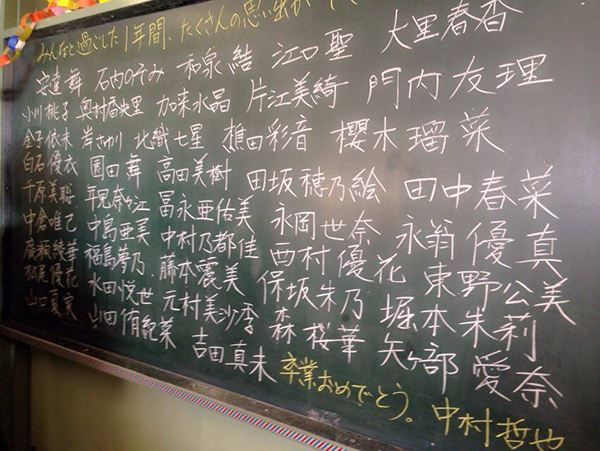 みんなと過ごした1年間、たくさんの思い出が
安達舞 石内のぞみ 和泉結 江口聖 大里春香
小川桃子 奥村香央里 加来水晶 片江美綺 門内友理
金子依未 岸さゆり 北織七星 樵田彩音 櫻木瑠菜
白石優衣 園田舞 高田美樹 田坂穂乃絵 田中春菜
千原美聡 年見奈々江 冨永亜佑美 永岡世奈 永翁優真
中倉唯乙 中島亜美 中村乃都佳 西村優花 東野公美
廣瀬綾華 福島夢乃 藤本震美 保坂朱乃 堀本朱莉
松尾優花 水田悦世 元村美沙季 森桜華 矢ヶ部愛奈
山口夏実 山田侑紀菜 吉田真未 卒業おめでとう。中村哲也